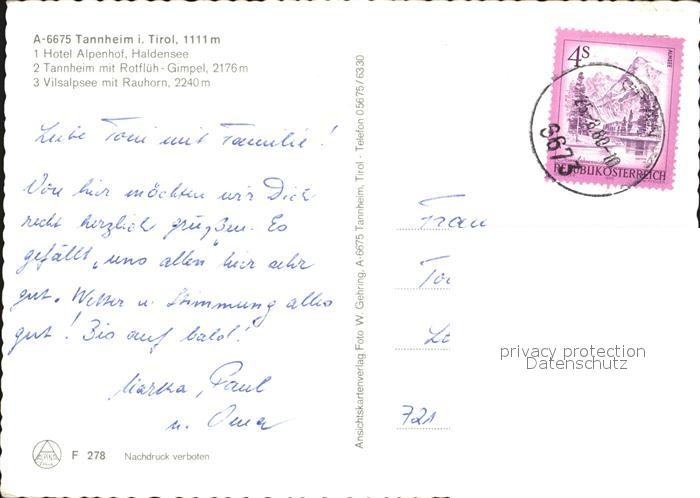 A-6675 Tannheim i. Tirol, 1111 m
1 Hotel Alpenhof, Haldensee
2 Tannheim mit Rotflüh - Gimpel, 2176 m
3 Vilsalpsee mit Rauhorn, 2240 m
Liebe Toni mit Familie!
Von hier möchten wir Dich
recht herzlich grüßen. Es
gefällt uns allen hier sehr
gut. Wetter u. Stimmung alles
gut! Bis auf bald!
Martha, Paul
u. Oma
F 278 Nachdruck verboten
Ansichtskartenverlag Foto W. Gehring, A-6675 Tannheim, Tirol - Telefon 05675/6330
4 S
REPUBLIK ÖSTERREICH
6675
Frau
721
privacy protection
Datenschutz